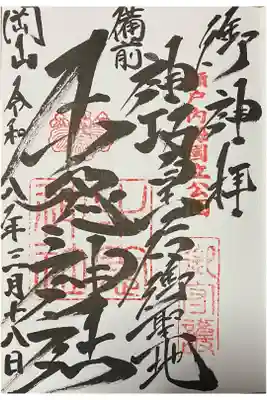 御神拝
瀬戸内海國立公園
神功皇后御聖地
備前
牛窓神社
岡山 令和八年二月十八日